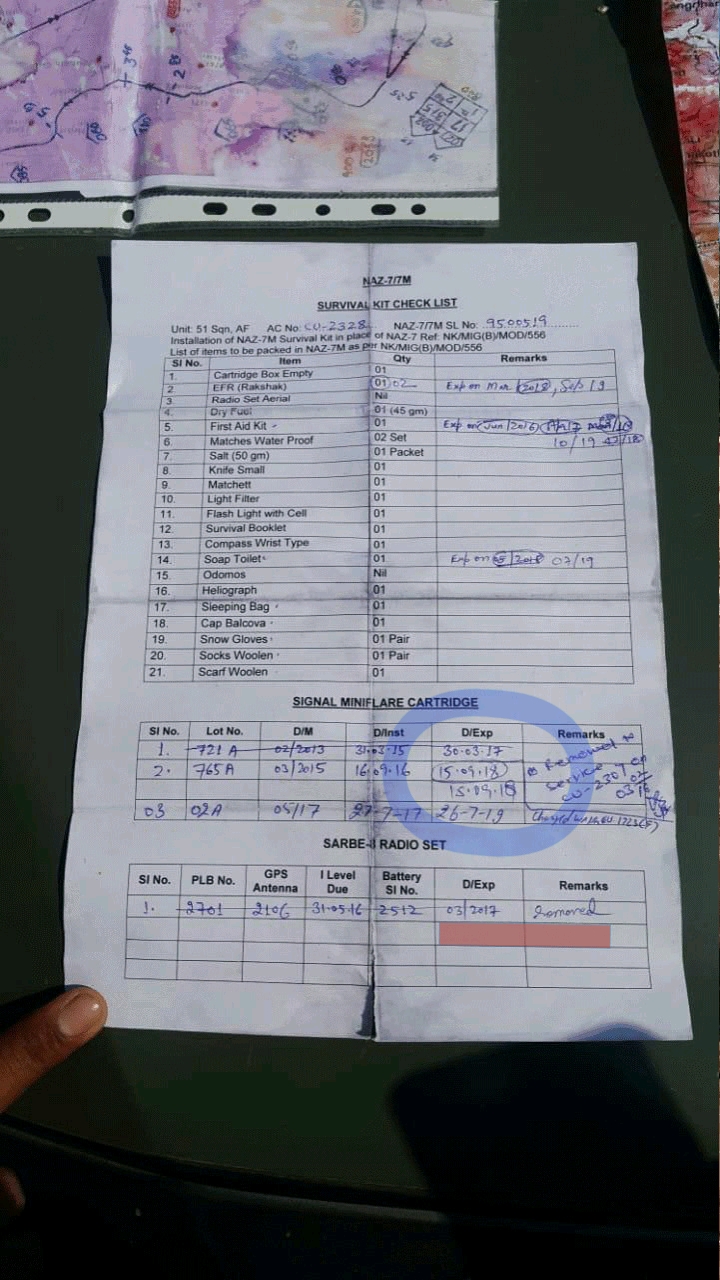 NAZ-7/7M
SURVIVAL KIT CHECK LIST
Unit: 51 Sqn, AF AC No: CU-2328 NAZ-7/7M SL No: 9500519
Installation of NAZ-7M Survival Kit in place of NAZ-7 Ref: NK/MIG(B)/MOD/556
List of items to be packed in NAZ-7M as per NK/MIG(B)/MOD/556
SI No. Item Qty Remarks
1. Cartridge Box Empty 01
2. EFR (Rakshak) 01 02 Exp on Mar 2018, Sep 19
3. Radio Set Aerial Nil
4. Dry Fuel 01 (45 gm)
5. First Aid Kit 01 Exp on Jun/2016
6. Matches Water Proof 02 Set 10/19
7. Salt (50 gm) 01 Packet
8. Knife Small 01
9. Matchett 01
10. Light Filter 01
11. Flash Light with Cell 01
12. Survival Booklet 01
13. Compass Wrist Type 01
14. Soap Toilet 01 Exp on 07/19
15. Odomos Nil
16. Heliograph 01
17. Sleeping Bag 01
18. Cap Balcova 01
19. Snow Gloves 01 Pair
20. Socks Woolen 01 Pair
21. Scarf Woolen 01
SIGNAL MINIFLARE CARTRIDGE
SI No. Lot No. D/M D/Inst D/Exp Remarks
1. 721 A 02/2013 31.03.15 30.03.17
2. 765A 03/2015 16.09.16 15.09.18 Removed
15.09.18 service on CU-2307
03 02A 05/17 27-7-17 26-7-19
SARBE-8 RADIO SET
SI No. PLB No. GPS Antenna I Level Due Battery SI No. D/Exp Remarks
1. 2701 2106 31.05.16 2512 03/2017 Removed